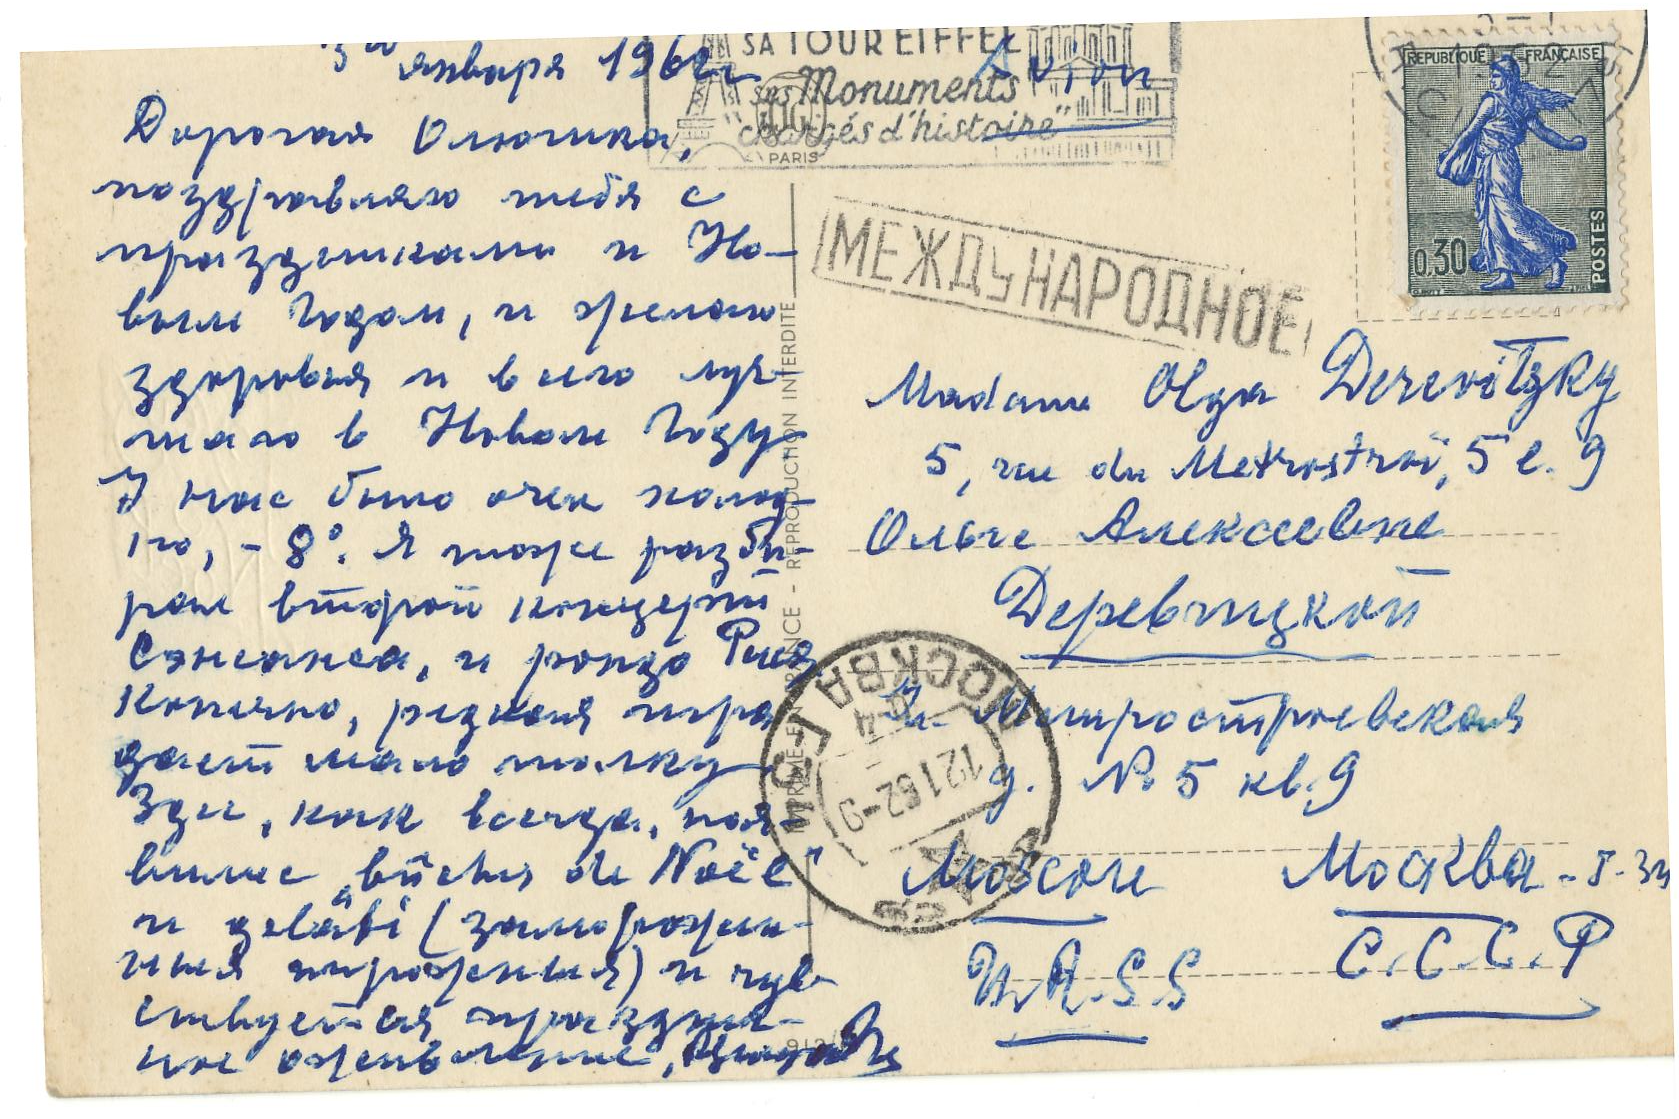 3го января 1962 г
Дорогая Олюшка,
поздравляю тебя с
праздниками и Но-
вым Годом, и желаю
здоровья и всего луч-
шаго в Новом Году,
У нас было очен холод-
но, - 8°. Я тоже разби-
раю второй концерт
Сэнсанса, и рондо
Конечно, редкая игра
дает мало толку
Зде, как всегда, поя-
вились „bûches de Noël"
и gelati (заморожен-
ныя пирожныя) и чув-
ствуется празднич-
ное оживление,
SA TOUR EIFFEL
ses Monuments
"chargés d'histoire"
PARIS
Avion
REPUBLIQUE FRANÇAISE
0,30
POSTES
МЕЖДУНАРОДНОЕ
IMPRIMÉ EN FRANCE - REPRODUCTION INTERDITE
Madame Olga Derevitzky
5, rue du Metrostroï, 5 e. 9
Ольге Алексеевне
Деревицкой
Ул. Метростроевская
д. № 5 кв. 9
МОСКВА
12 1 62-9
Moscou Москва - Г-34
U.R.S.S С.С.С.Р